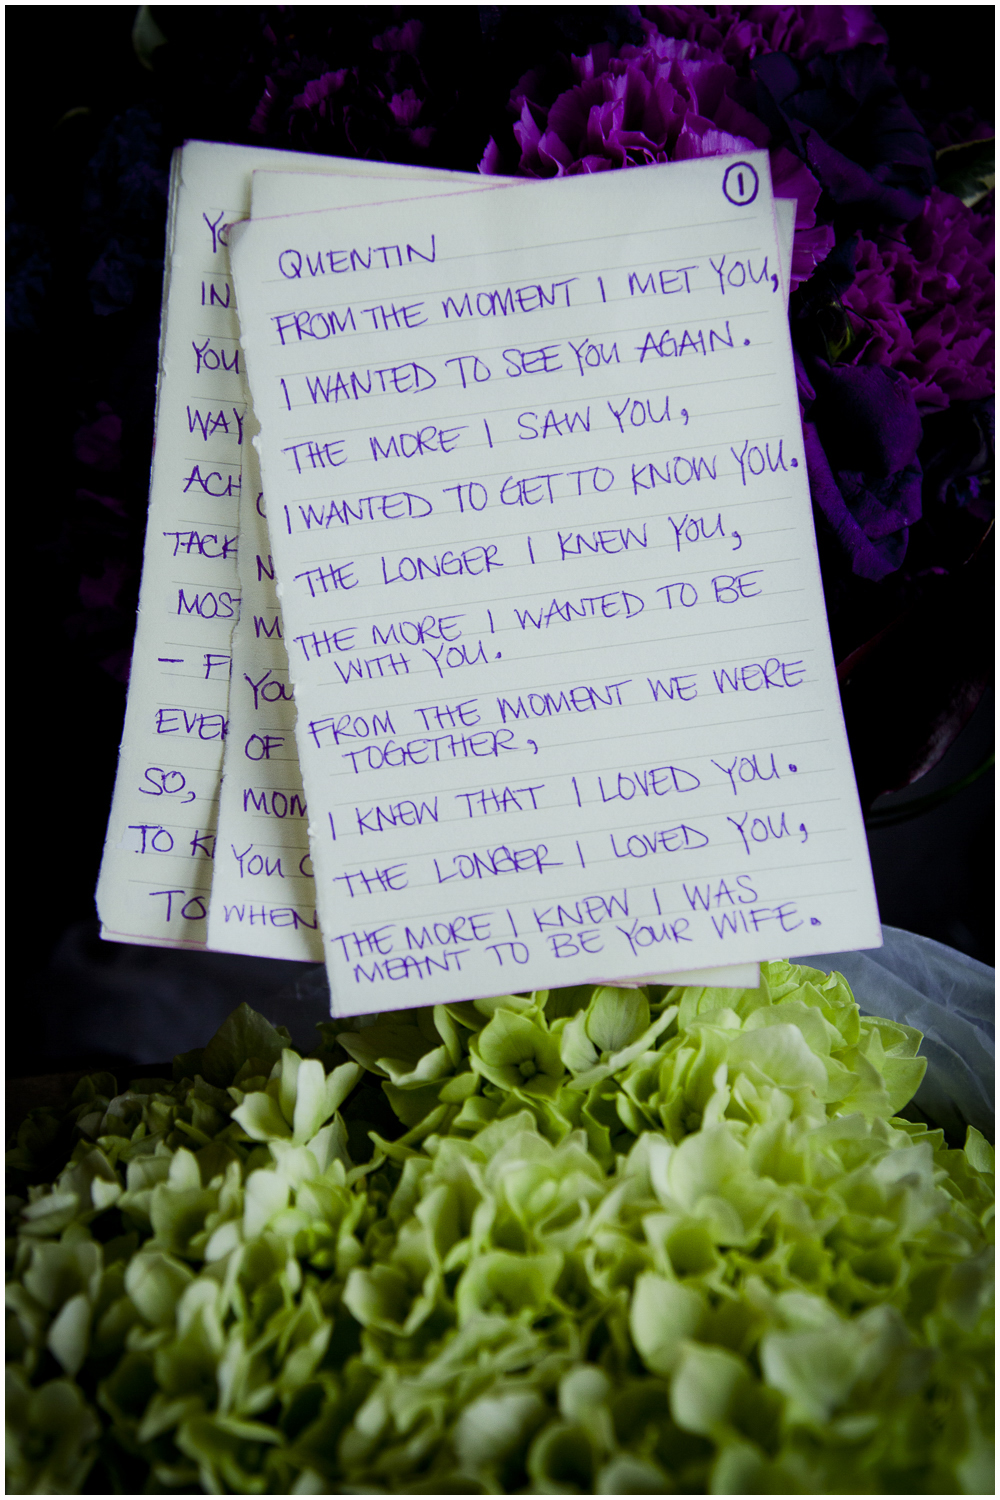 1
QUENTIN
FROM THE MOMENT I MET YOU,
I WANTED TO SEE YOU AGAIN.
THE MORE I SAW YOU,
I WANTED TO GET TO KNOW YOU.
THE LONGER I KNEW YOU,
THE MORE I WANTED TO BE
WITH YOU.
FROM THE MOMENT WE WERE
TOGETHER,
I KNEW THAT I LOVED YOU.
THE LONGER I LOVED YOU,
THE MORE I KNEW I WAS
MEANT TO BE YOUR WIFE.
YOU
OF
YOU
WHEN
IN
YOU
WAY
SO,
TO
TO